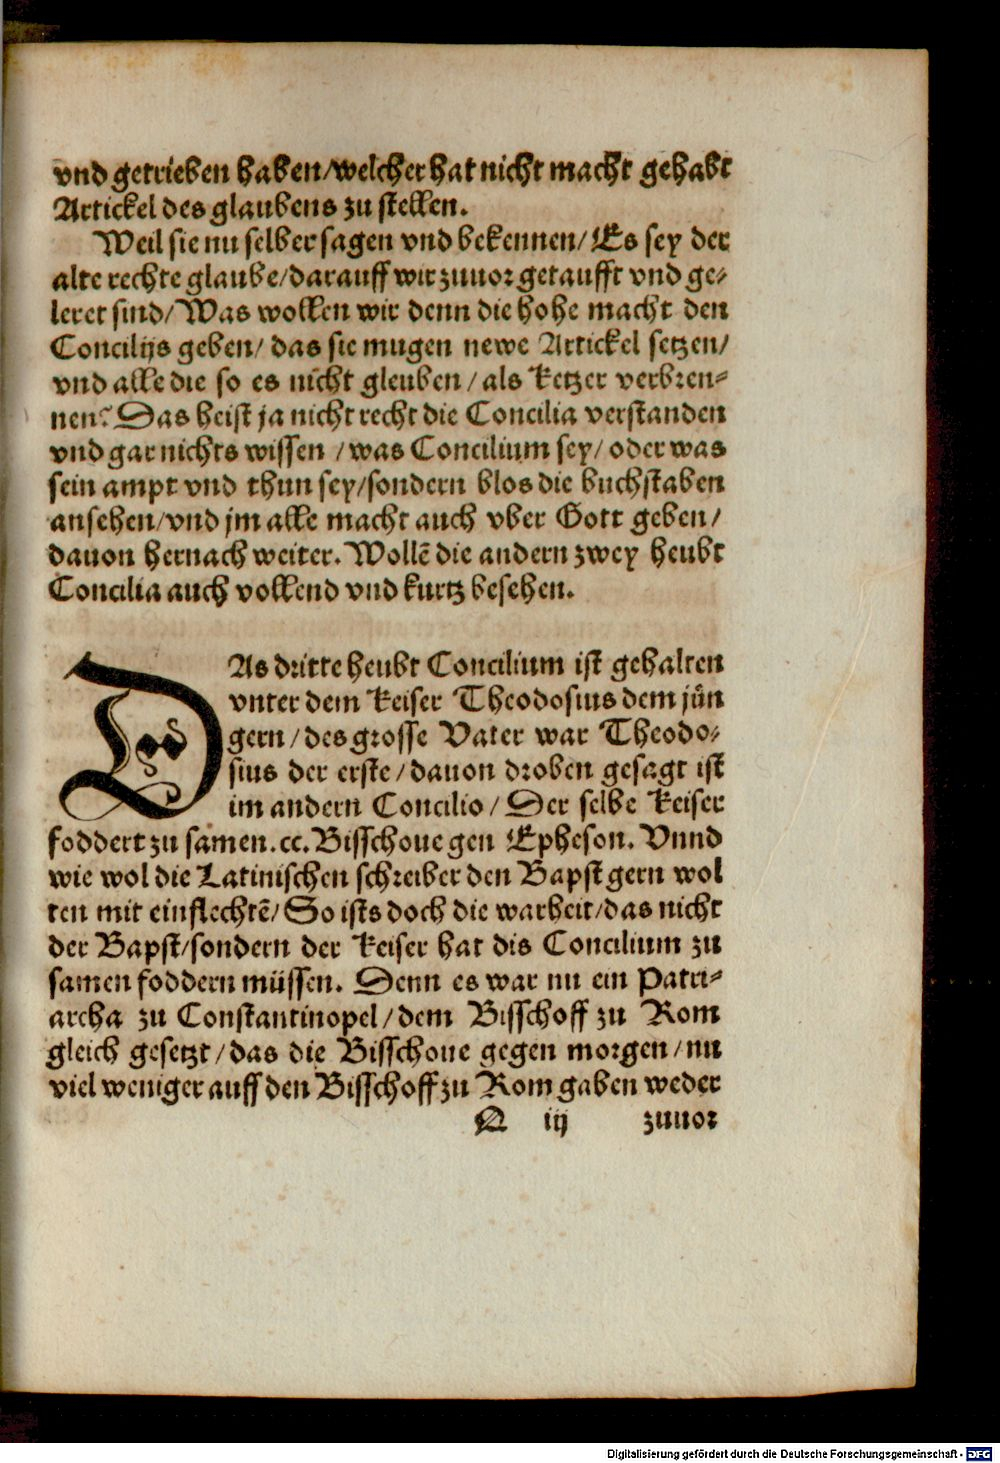 vnd getrieben haben/welcher hat nicht macht gehabt
Artickel des glaubens zu stellen.
Weil sie nu selber sagen vnd bekennen/Es sey der
alte rechte glaube/darauff wir zuuor getaufft vnd ge-
leret sind/Was wollen wir denn die hohe macht den
Concilijs geben/ das sie mugen newe Artickel setzen/
vnd alle die so es nicht gleuben/als Ketzer verbren-
nen? Das heist ja nicht recht die Concilia verstanden
vnd gar nichts wissen /was Concilium sey/oder was
sein ampt vnd thun sey/sondern blos die buchstaben
ansehen/vnd jm alle macht auch vber Gott geben/
dauon hernach weiter. Wollē die andern zwey heubt
Concilia auch vollend vnd kurtz besehen.
DAs dritte heubt Concilium ist gehalten
vnter dem Keiser Theodosius dem jün
gern/des grosse Vater war Theodo-
sius der erste/dauon droben gesagt ist
im andern Concilio/Der selbe Keiser
foddert zu samen.cc.Bisschoue gen Epheson. Vnnd
wie wol die Latinischen schreiber den Bapst gern wol
ten mit einflechtē/So ists doch die warheit/das nicht
der Bapst/sondern der Keiser hat dis Concilium zu
samen foddern müssen. Denn es war nu ein Patri-
archa zu Constantinopel/dem Bisschoff zu Rom
gleich gesetzt/das die Bisschoue gegen morgen/nu
viel weniger auff den Bisschoff zu Rom gaben weder
Q iij zuuor
Digitalisierung gefördert durch die Deutsche Forschungsgemeinschaft - DFG